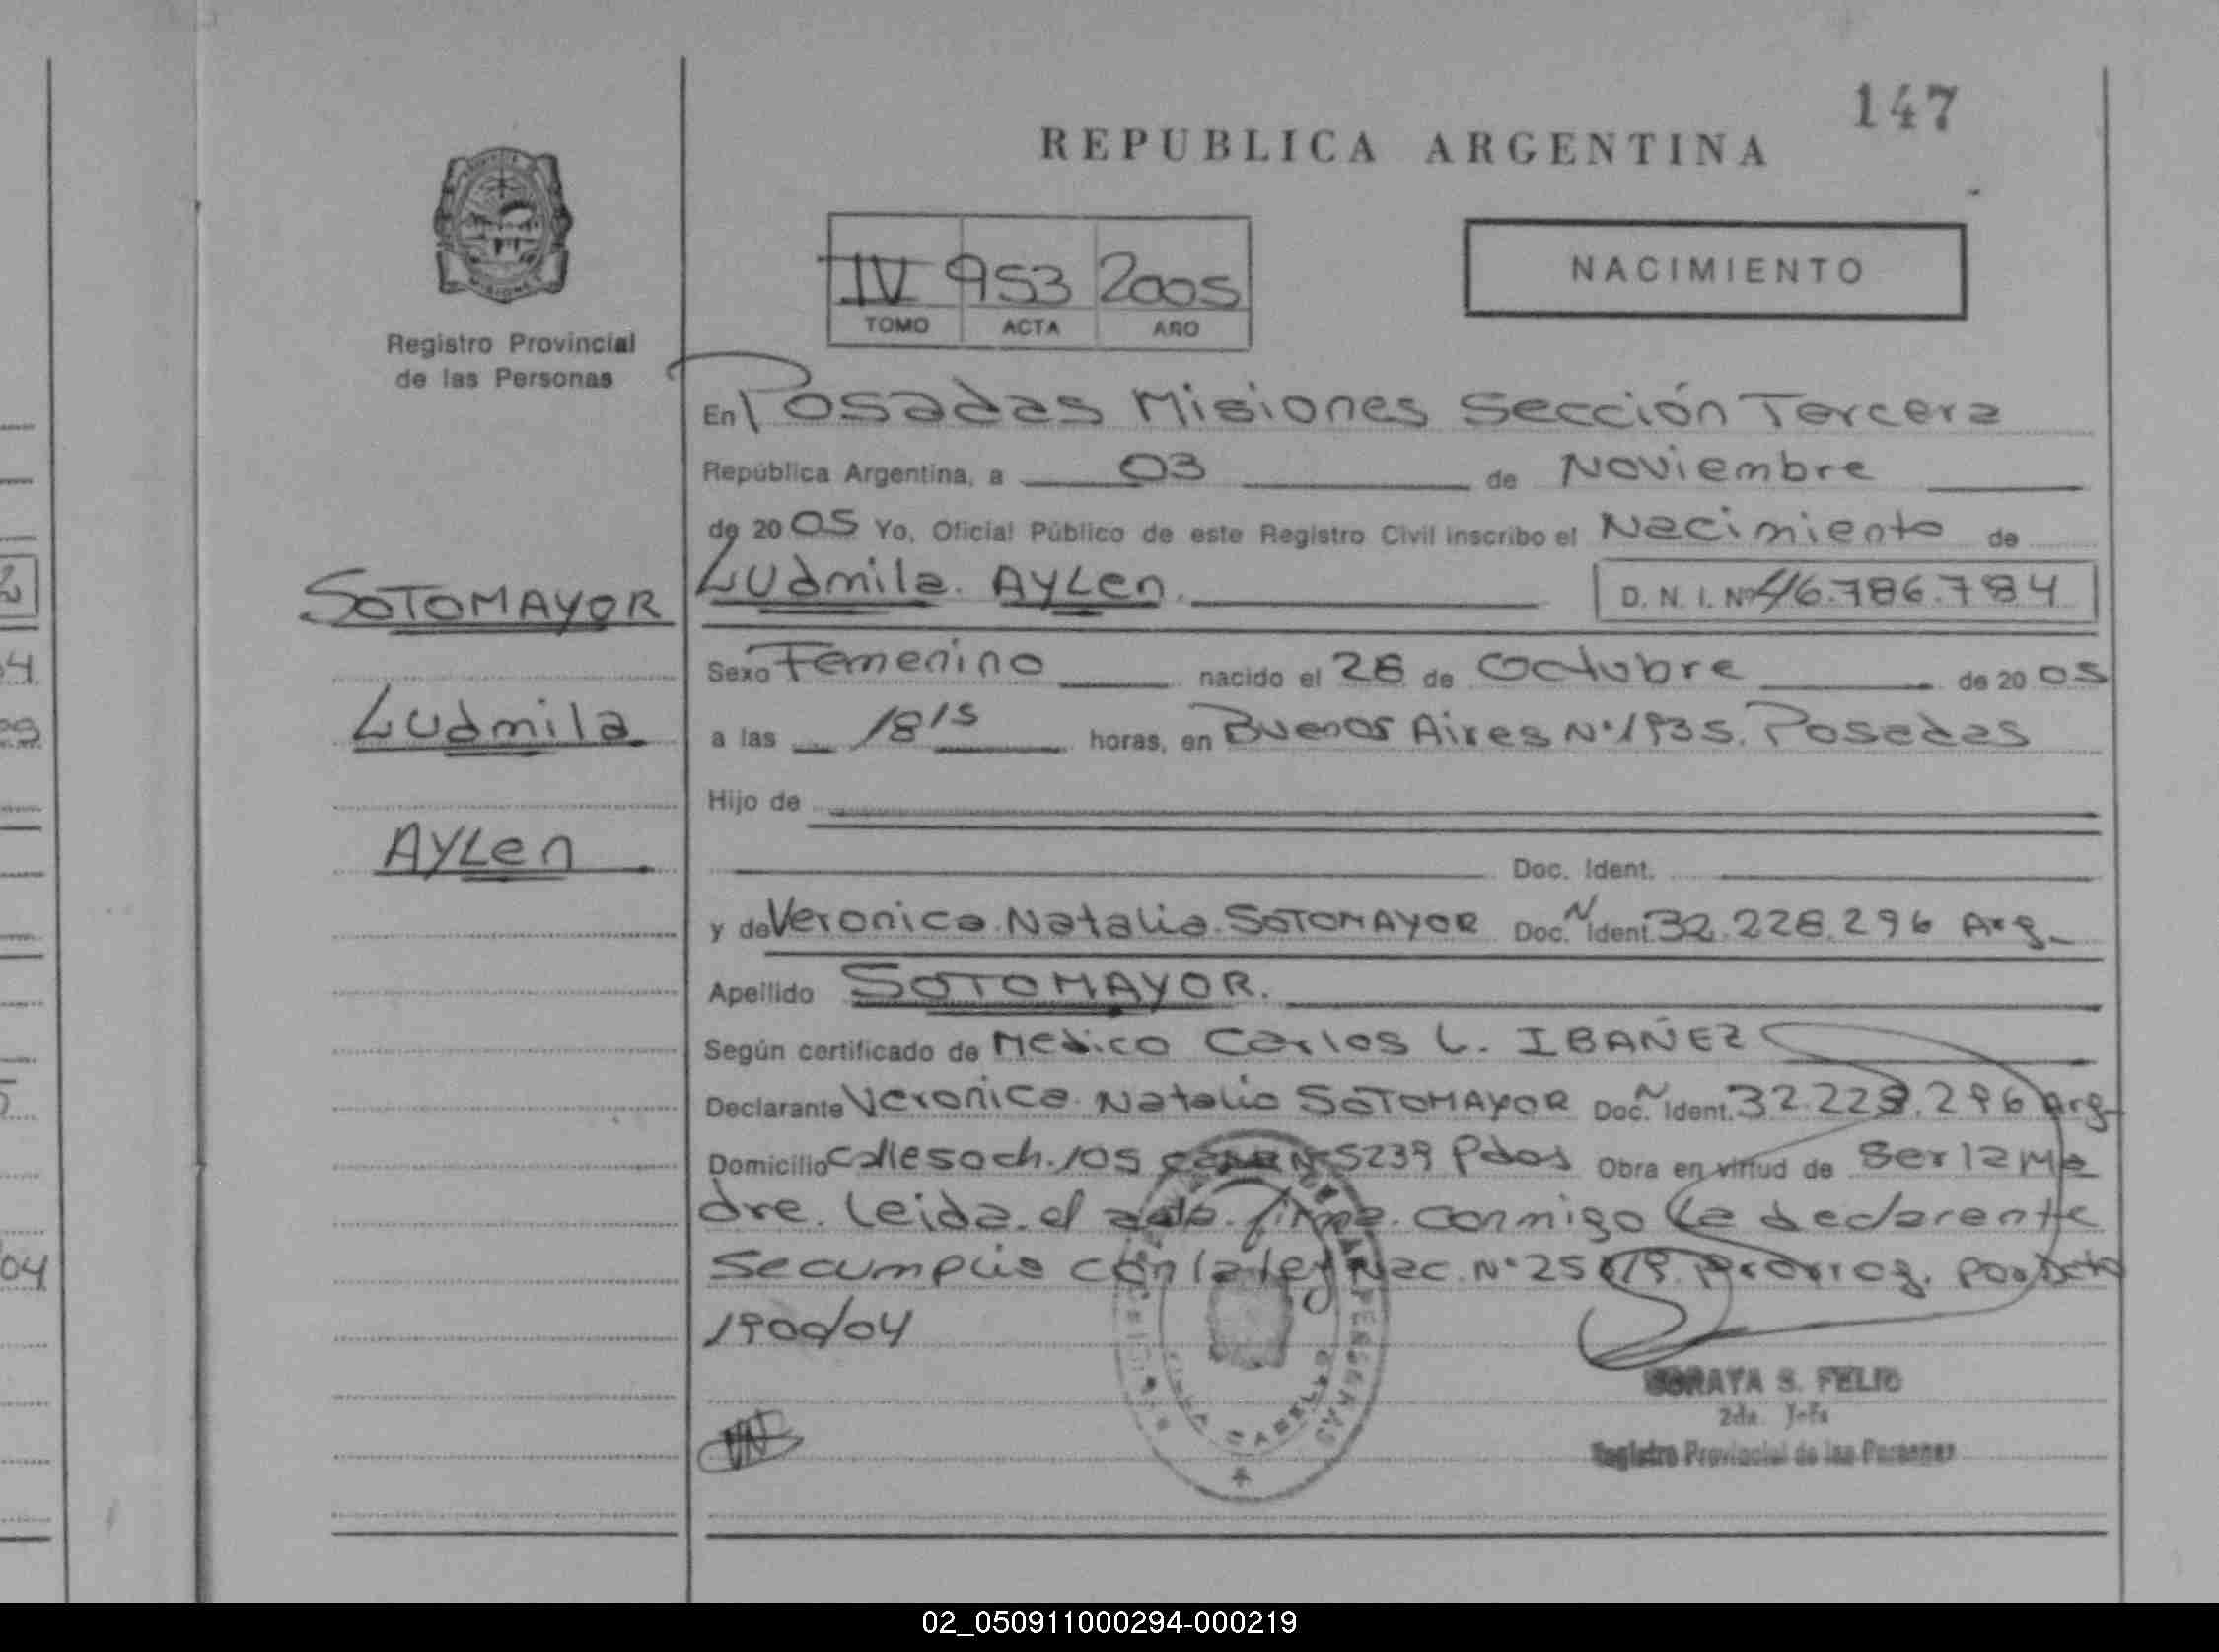 147
REPUBLICA ARGENTINA
IV 953 2005
TOMO ACTA AÑO
NACIMIENTO
MISIONES
Registro Provincial
de las Personas
En Posadas Misiones Sección Tercera
República Argentina, a 03 de Noviembre
de 2005 Yo, Oficial Público de este Registro Civil inscribo el Nacimiento de
SOTOMAYOR
Ludmila
AYLen
Ludmila. AYLen. D. N. I. Nº 46.786.784
Sexo Femenino nacido el 28 de Octubre de 20 05
a las 18 15 horas, en Buenos Aires Nº 1935. Posadas
Hijo de
Doc. Ident.
y de Veronica. Natalia. SOTOMAYOR Doc. N Ident. 32.228.296 Arg.
Apellido SOTOMAYOR.
Según certificado de Medico Carlos L. IBAÑEZ
Declarante Veronica. Natalia SOTOMAYOR Doc. N Ident. 32.228.296 Arg.
Domicilio calle soch. 105 casa Nº 5239 Pdas Obra en virtud de Ser la Ma
dre. Leida. el acta. firma. conmigo La declarante
Se cumplio con la ley Nac. Nº 25 819. Prorrog. por Dcto
1900/04
VILLA CABELLO
SORAYA S. FELIO
2da. Jefa
Registro Provincial de las Personas
04
02_050911000294-000219